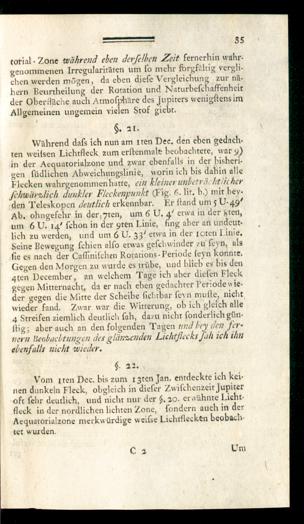 35
torial-Zone während eben derselben Zeit fernerhin wahr-
genommenen Irregularitäten um so mehr sorgfältig vergli-
chen werden mögen, da eben diese Vergleichung zur nä-
hern Beurtheilung der Rotation und Naturbeschaffenheit
der Oberfläche auch Atmosphäre des Jupiters wenigstens im
Allgemeinen ungemein vielen Stof giebt.
§. 21.
Während daß ich nun am 1ten Dec. den eben gedach-
ten weißen Lichtfleck zum erstenmale beobachtete, war 9)
in der Aequatorialzone und zwar ebenfalls in der bisheri-
gen südlichen Abweichungslinie, worin ich bis dahin alle
Flecken wahrgenommen hatte, ein kleiner unbeträchtlicher
schwärzlich dunkler Fleckenpunkt (Fig. 6. lit. b.) mit bey-
den Teleskopen deutlich erkennbar. Er stand um 5 U. 49′
Ab. ohngefehr in der 7ten, um 6 U. 4′ etwa in der 8ten,
um 6 U. 14′ schon in der 9ten Linie, fing aber an undeut-
lich zu werden, und um 6 U. 33′ etwa in der 10ten Linie.
Seine Bewegung schien also etwas geschwinder zu seyn, als
sie es nach der Cassinischen Rotations-Periode seyn konnte.
Gegen den Morgen zu wurde es trübe, und blieb es bis den
4ten December, an welchem Tage ich aber diesen Fleck
gegen Mitternacht, da er nach eben gedachter Periode wie-
der gegen die Mitte der Scheibe sichtbar seyn mußte, nicht
wieder fand. Zwar war die Witterung, ob ich gleich alle
4 Streifen ziemlich deutlich sah, dazu nicht sonderlich gün-
stig; aber auch an den folgenden Tagen und bey den fer-
nern Beobachtungen des glänzenden Lichtflecks sah ich ihn
ebenfalls nicht wieder.
§. 22.
Vom 1ten Dec. bis zum 13ten Jan. entdeckte ich kei-
nen dunkeln Fleck, obgleich in dieser Zwischenzeit Jupiter
oft sehr deutlich, und nicht nur der §. 20. erwähnte Licht-
fleck in der nordlichen lichten Zone, sondern auch in der
Aequatorialzone merkwürdige weiße Lichtflecken beobach-
tet wurden.
C 2 Um